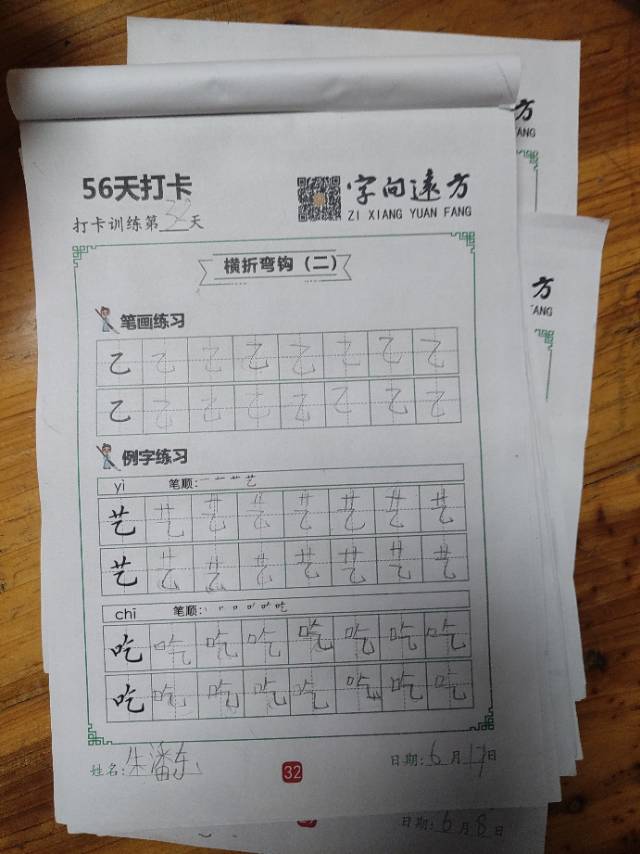 56天打卡
字向远方
ZI XIANG YUAN FANG
打卡训练第32天
横折弯钩（二）
笔画练习
乙 乙 乙 乙 乙 乙 乙 乙
乙 乙 乙 乙 乙 乙 乙 乙
例字练习
yì 笔顺: 一 十 艹 艺
艺 艺 艺 艺 艺 艺 艺 艺
艺 艺 艺 艺 艺 艺 艺 艺
chī 笔顺:
吃 吃 吃 吃 吃 吃 吃 吃
吃 吃 吃 吃 吃 吃 吃 吃
姓名:朱潘东
32
日期:6月17日
日期:6月8日
方
FANG
方
FANG